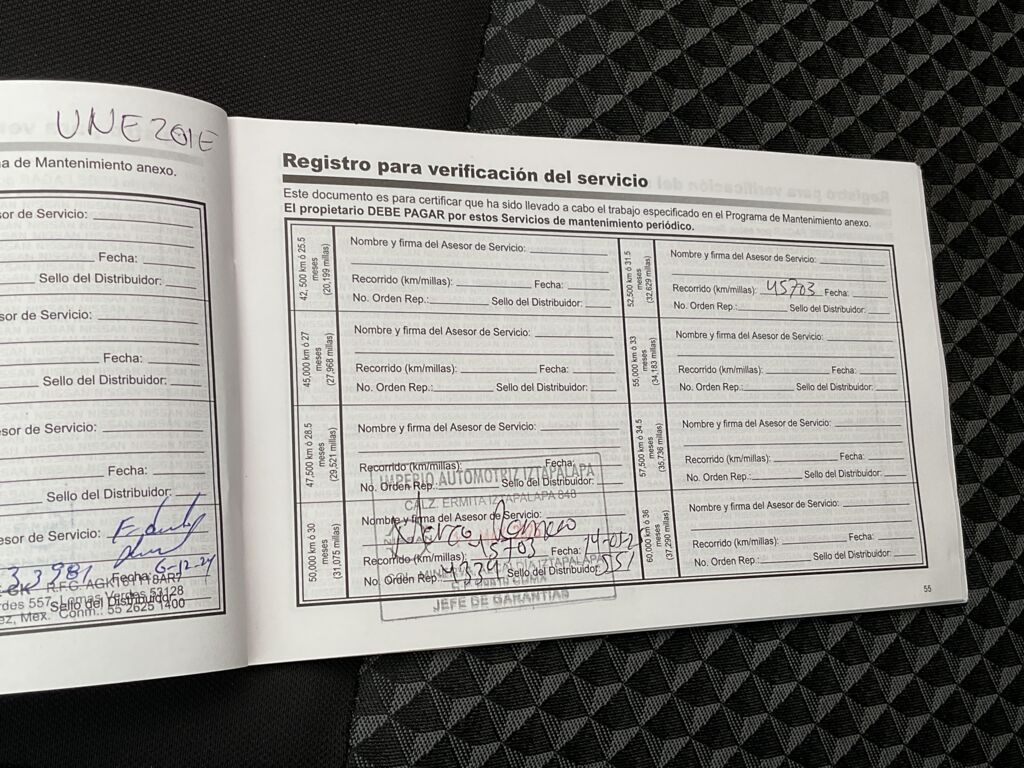 UNE201E
a de Mantenimiento anexo.
sor de Servicio:
Fecha:
Sello del Distribuidor:
sor de Servicio:
Fecha:
Sello del Distribuidor:
sor de Servicio:
Fecha:
Sello del Distribuidor:
esor de Servicio:
33981 Fecha: 6-12-24
R.F.C. AGK101118AR7
rdes 557, Lomas Verdes 53128
Sello del Distribuidor
ez, Mex. Conm.: 55 2625 1400
Registro para verificación del servicio
Este documento es para certificar que ha sido llevado a cabo el trabajo especificado en el Programa de Mantenimiento anexo.
El propietario DEBE PAGAR por estos Servicios de mantenimiento periódico.
42, 500 km ó 25.5
meses
(20,199 millas)
Nombre y firma del Asesor de Servicio:
Recorrido (km/millas): Fecha:
No. Orden Rep.: Sello del Distribuidor:
45,000 km ó 27
meses
(27,968 millas)
Nombre y firma del Asesor de Servicio:
Recorrido (km/millas): Fecha:
No. Orden Rep.: Sello del Distribuidor:
47,500 km ó 28.5
meses
(29,521 millas)
Nombre y firma del Asesor de Servicio:
Recorrido (km/millas): Fecha:
No. Orden Rep.: Sello del Distribuidor:
IMPERIO AUTOMOTRIZ IZTAPALAPA
CALZ. ERMITA IZTAPALAPA 848
50,000 km ó 30
meses
(31,075 millas)
Nombre y firma del Asesor de Servicio:
Recorrido (km/millas): 45703 Fecha:
No. Orden Rep. 4339 Sello del Distribuidor: 551
JEFE DE GARANTIAS
52,500 km ó 31.5
meses
(32,629 millas)
Nombre y firma del Asesor de Servicio:
Recorrido (km/millas): 45703 Fecha:
No. Orden Rep.: Sello del Distribuidor:
55,000 km ó 33
meses
(34,183 millas)
Nombre y firma del Asesor de Servicio:
Recorrido (km/millas): Fecha:
No. Orden Rep.: Sello del Distribuidor:
57,500 km ó 34.5
meses
(35,736 millas)
Nombre y firma del Asesor de Servicio:
Recorrido (km/millas): Fecha:
No. Orden Rep.: Sello del Distribuidor:
60,000 km ó 36
meses
(37,290 millas)
Nombre y firma del Asesor de Servicio:
Recorrido (km/millas): Fecha:
No. Orden Rep.: Sello del Distribuidor:
55